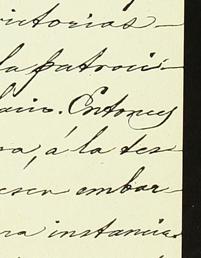 victorias-
la patroci-
lario. Entonces
ra, á la tes-
esen embar-
na instancia